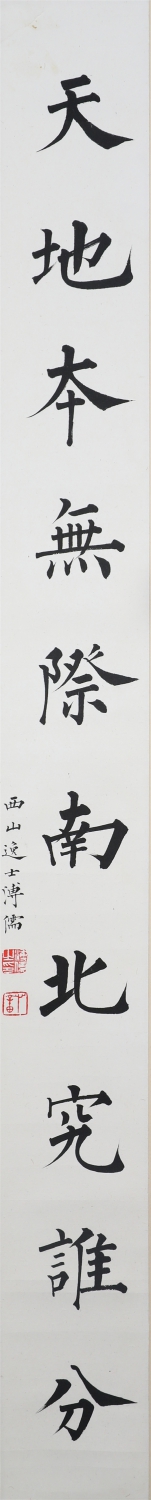 天地本無際南北究誰分
西山逸士溥儒